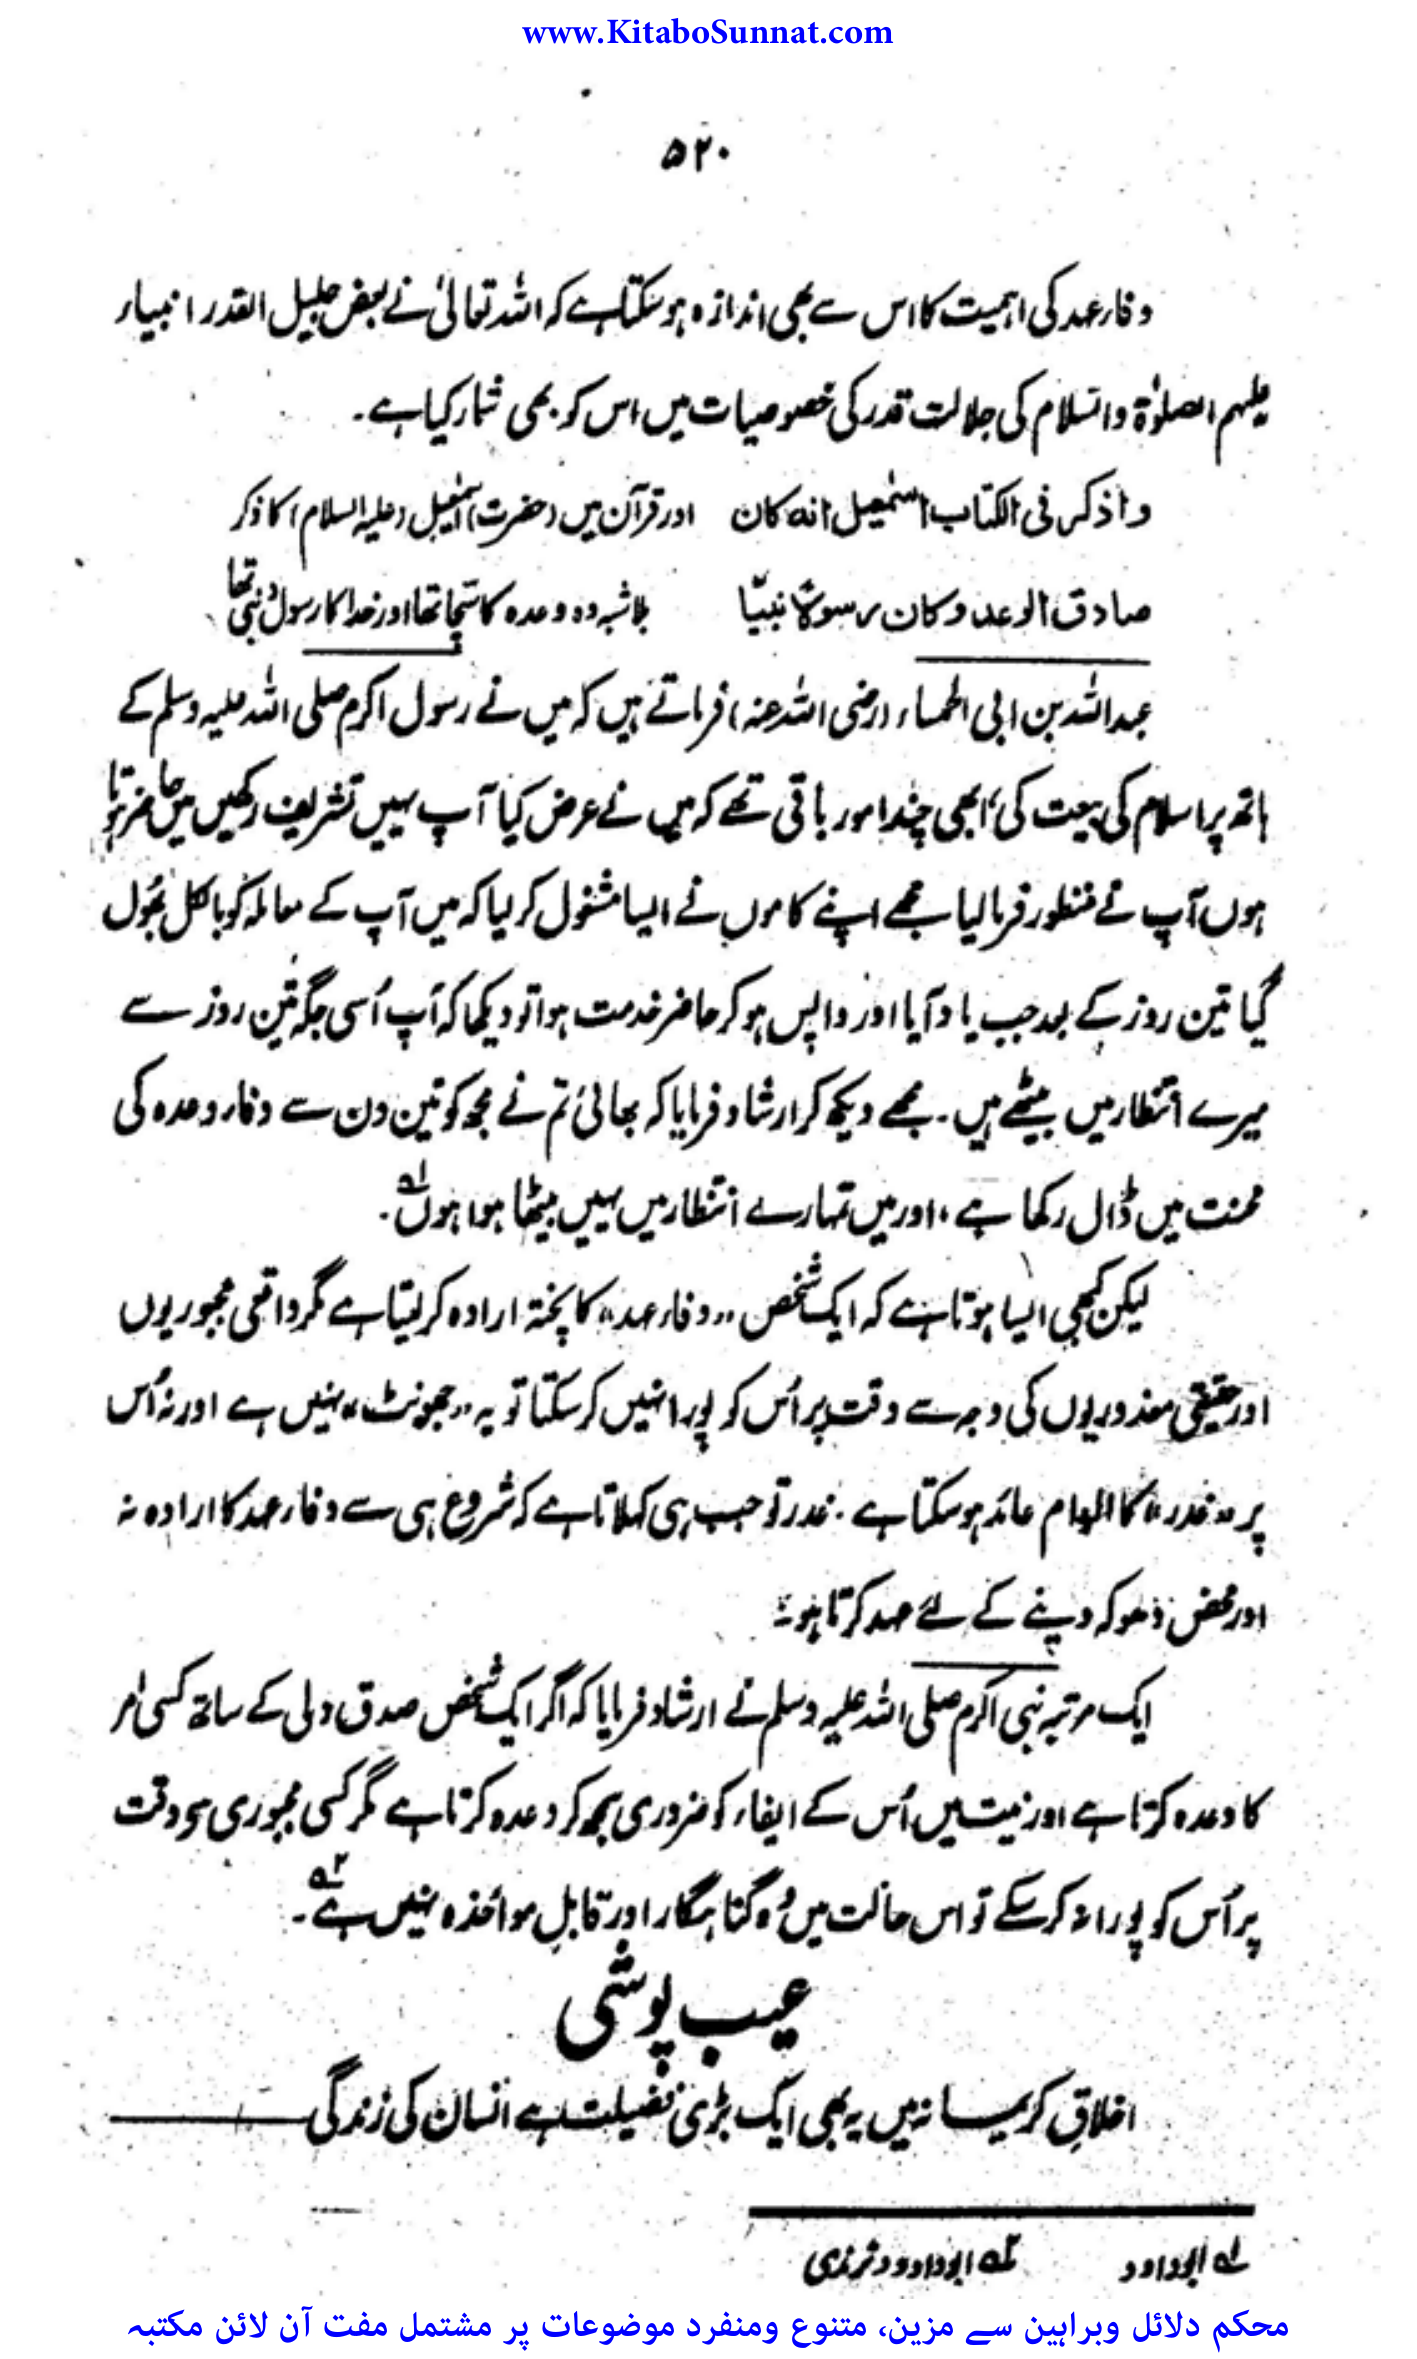 www.KitaboSunnat.com
۵۲۰
وفاء عہد کی اہمیت کا اس سے بھی اندازہ ہو سکتا ہے کہ اللہ تعالیٰ نے بعض جلیل القدر انبیاء
علیہم الصلوٰۃ والسلام کی جلالت قدر کی خصوصیات میں اس کو بھی شمار کیا ہے۔
واذکر فی الکتاب اسمٰعیل انہ کان اور قرآن میں (حضرت) اسمٰعیل (علیہ السلام) کا ذکر
صادق الوعد وکان رسولاً نبیّا بلاشبہ وہ وعدہ کا سچا تھا اور خدا کا رسول و نبی تھا
عبداللہ بن ابی الحمساء (رضی اللہ عنہ) فرماتے ہیں کہ میں نے رسول اکرم صلی اللہ علیہ وسلم کے
ہاتھ پر اسلام کی بیعت کی، ابھی چند امور باقی تھے کہ میں نے عرض کیا آپ یہیں تشریف رکھیں میں حاضر ہوتا
ہوں آپ نے منظور فرما لیا مجھے اپنے کاموں نے ایسا مشغول کر لیا کہ میں آپ کے معاملہ کو بالکل بھُول
گیا تین روز کے بعد جب یاد آیا اور واپس ہو کر حاضر خدمت ہوا تو دیکھا کہ آپ اُسی جگہ تین روز سے
میرے انتظار میں بیٹھے ہیں۔ مجھے دیکھ کر ارشاد فرمایا کہ بھائی تم نے مجھ کو تین دن سے وفاء وعدہ کی
محنت میں ڈال رکھا ہے، اور میں تمہارے انتظار میں یہیں بیٹھا ہوا ہوں ۱؎۔
لیکن کبھی ایسا ہوتا ہے کہ ایک شخص "وفاء عہد" کا پختہ ارادہ کر لیتا ہے مگر واقعی مجبوریوں
اور حقیقی معذوریوں کی وجہ سے وقت پر اُس کو پورا نہیں کر سکتا تو یہ "جھونٹ" نہیں ہے اور نہ اُس
پر "غدر" کا الزام عائد ہو سکتا ہے۔ غدر تو جب ہی کہلاتا ہے کہ شروع ہی سے وفاء عہد کا ارادہ نہ
اور محض دھوکہ دینے کے لئے عہد کرتا ہو۔
ایک مرتبہ نبی اکرم صلی اللہ علیہ وسلم نے ارشاد فرمایا کہ اگر ایک شخص صدق دلی کے ساتھ کسی امر
کا وعدہ کرتا ہے اور نیت میں اُس کے ایفاء کو ضروری سمجھ کر وعدہ کرتا ہے مگر کسی مجبوری سے وقت
پر اُس کو پورا نہ کر سکے تو اس حالت میں وُہ گناہگار اور قابلِ مواخذہ نہیں ہے ۲؎۔
عیب پوشی
اخلاقِ کریمانہ میں یہ بھی ایک بڑی فضیلت ہے انسان کی زندگی
۱؎ ابوداود ۲؎ ابوداود و ترمذی
محکم دلائل وبراہین سے مزین، متنوع ومنفرد موضوعات پر مشتمل مفت آن لائن مکتبہ